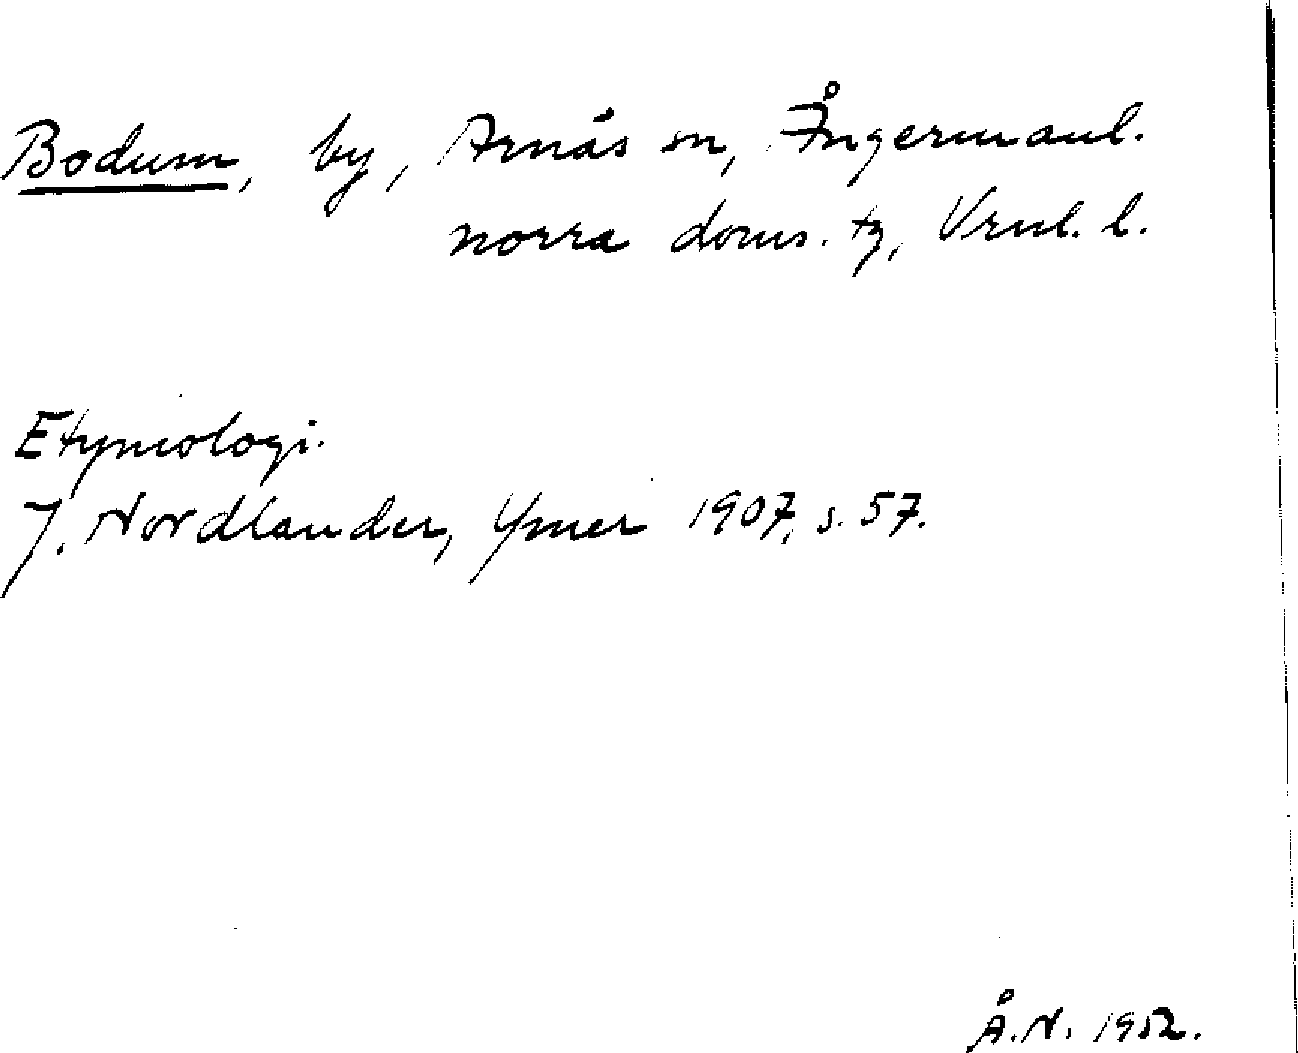 Bodum, by, Arnäs sn, Ångermanl.
norra doms. tg, Vrnl. l.
Etymologi.
J. Nordlander, Ymer 1907, s. 57.
Å.N. 1952.